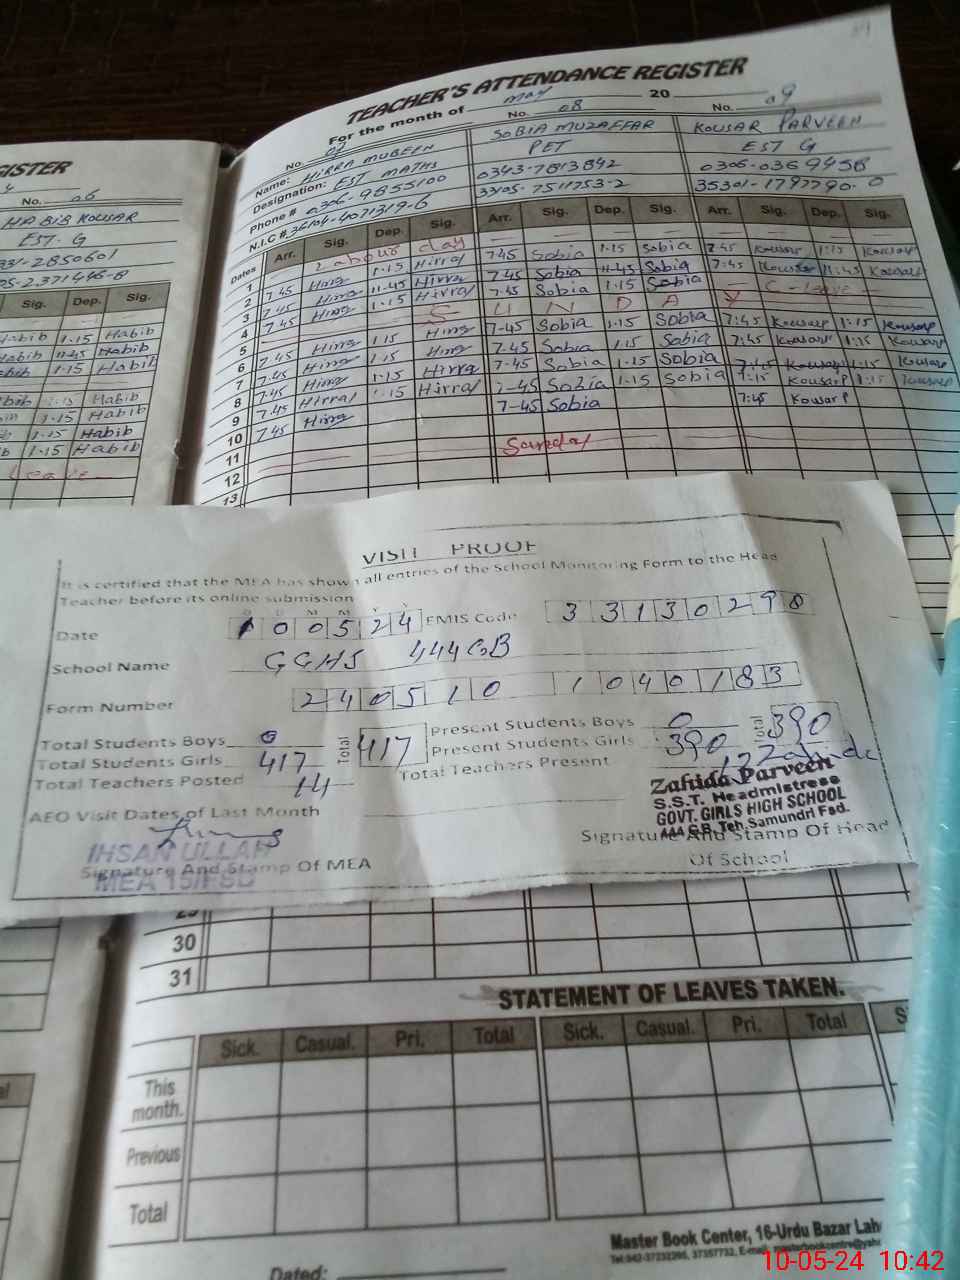 TEACHER'S ATTENDANCE REGISTER
For the month of May 20
No. No. 08 No. 09
Name: HIRRA MUBEEN SOBIA MUZAFFAR KOUSAR PARVEEN
Designation: EST MATHS PET EST G
Phone # 0306-9855100 0343-7813842 0306-0369458
N.I.C # 36104-4071319-6 33105-7511753-2 35301-1797790-0
Dates Arr. Sig. Dep. Sig. Arr. Sig. Dep. Sig. Arr. Sig. Dep. Sig.
1 Labour day
2 7.45 Hirra 1.15 Hirra 7.45 Sobia 1.15 Sobia 7:45 Kousar 1:15 Kousar
3 7.45 Hirra 11.45 Hirra 7.45 Sobia 11.45 Sobia 7:45 Kousar 11:45 Kousar
4 7.45 Hirra 1.15 Hirra 7.45 Sobia 1.15 Sobia C-leave
5 S U N D A Y
6 7.45 Hirra 1.15 Hirra 7-45 Sobia 1.15 Sobia 7:45 KousarP 1:15 KousarP
7 7.45 Hirra 1.15 Hirra 7.45 Sobia 1.15 Sobia 7:45 KousarP 1:15 Kousar
8 7.45 Hirra 1.15 Hirra 7-45 Sobia 1.15 Sobia KousarP 1:15 Kousar
9 7.45 Hirra 1.15 Hirra 7-45 Sobia 1.15 Sobia KousarP 1:15
10 7.45 Hirra 7-45 Sobia 7:45 KousarP
11
12 Sunday
13
GISTER
No. 06
HABIB KOUSAR
EST. G
331-2850601
05-2371446-8
Sig. Dep. Sig.
Habib 1.15 Habib
Habib 11.45 Habib
Habib 1.15 Habib
Habib 1.15 Habib
1.15 Habib
1.15 Habib
1.15 Habib
Leave
VISIT PROOF
It is certified that the MEA has shown all entries of the School Monitoring Form to the Head
Teacher before its online submission
D D M M Y Y
Date 100524 EMIS Code 33130298
School Name GGHS 444 GB
Form Number 240510 1040183
Total Students Boys 0 Present Students Boys 0
Total Students Girls 417 Total 417 Present Students Girls 390 Total 390
Total Teachers Posted 14 Total Teachers Present 12 Zahida
AEO Visit Dates of Last Month
Zahida Parveen
S.S.T. Headmistress
GOVT. GIRLS HIGH SCHOOL
444 G.B. Teh. Samundri Fsd.
IHSAN ULLAH
MEA 15/FSD
Signature And Stamp Of MEA
Signature And Stamp Of Head
Of School
29
30
31
STATEMENT OF LEAVES TAKEN.
Sick. Casual. Pri. Total Sick. Casual. Pri. Total S
This
month.
Previous
Total
Master Book Center, 16-Urdu Bazar Lah
Dated:
10-05-24 10:42